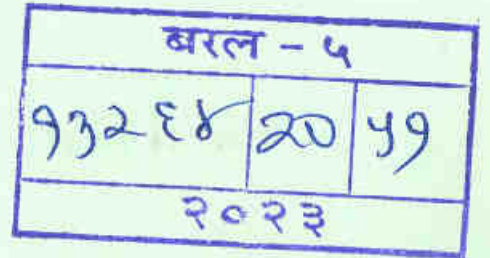 बरल - ५
१३२६४ 20 ५१
२०२३